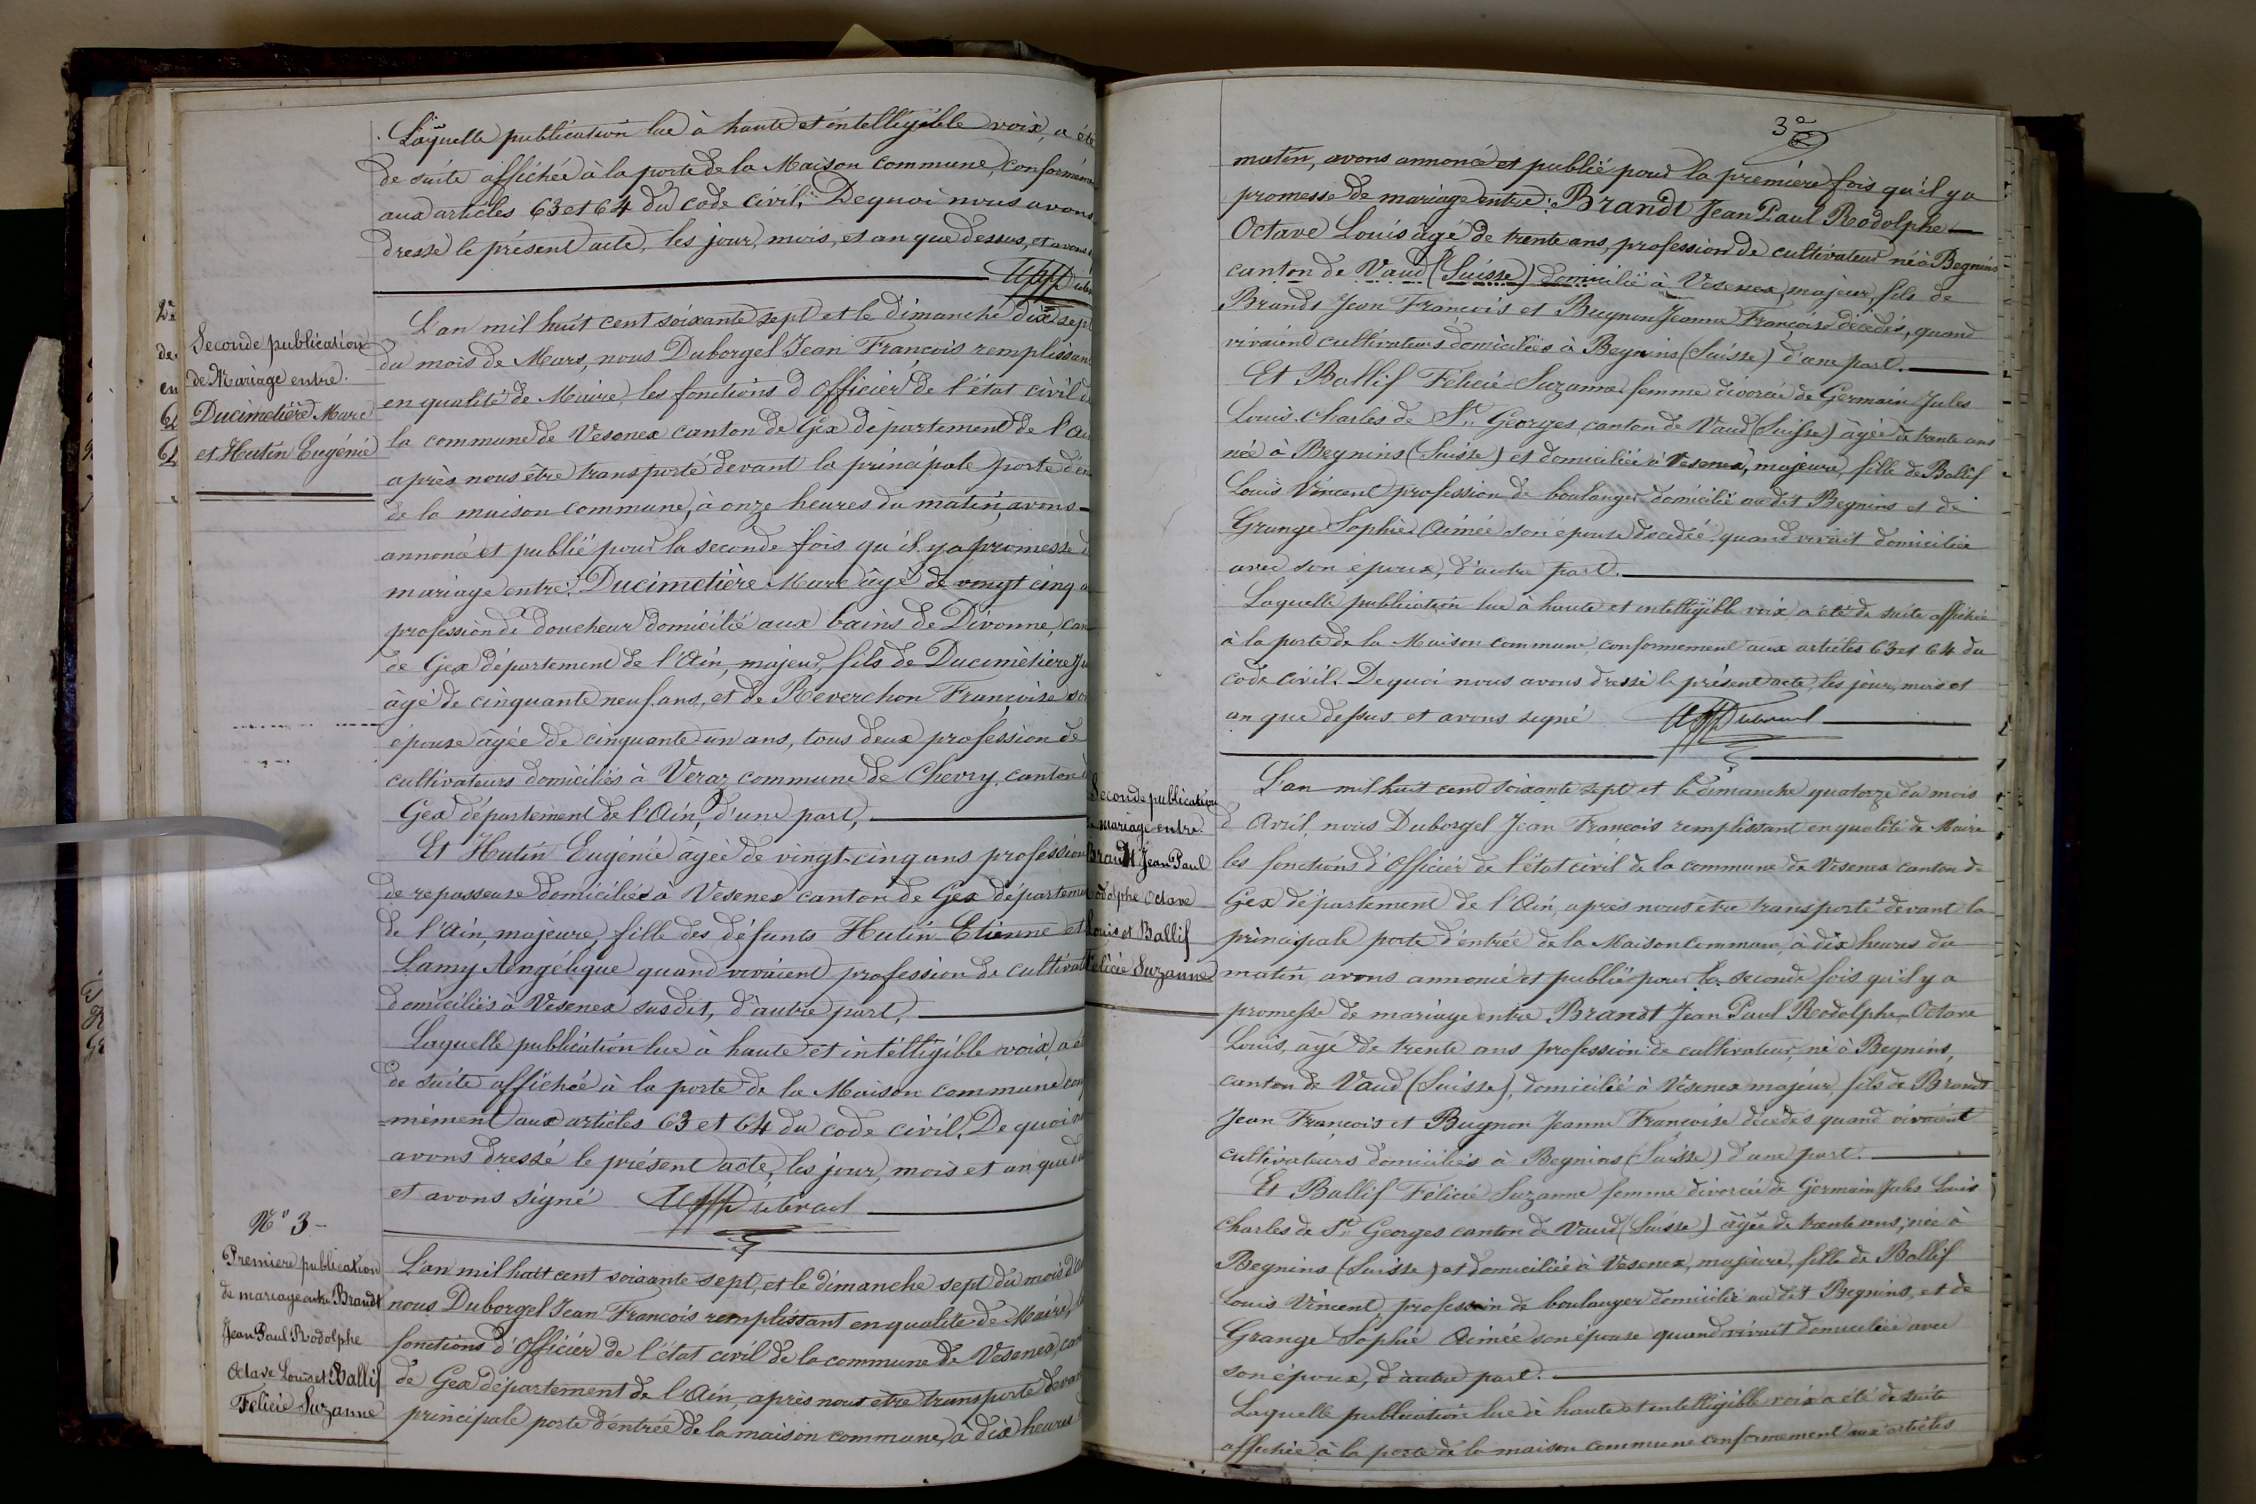 Laquelle publication lue à haute et intelligible voix, a été
de suite affichée à la porte de la Maison commune, conformém
aux articles 63 et 64 du code civil. De quoi nous avons
dressé le présent acte, les jour, mois, et an que dessus, et avons
Seconde publication
de Mariage entre
Ducimetière Marc
et Hutin Eugénie
L'an mil huit cent soixante sept et le dimanche dix sept
du mois de Mars, nous Duborgel Jean François remplissan
en qualité de Maire, les fonctions d'Officier de l'état civil d
la commune de Vesenex canton de Gex département de l'Ai
après nous être transporté devant la principale porte d'en
de la maison commune, à onze heures du matin, avons
annoncé et publié pour la seconde fois qu'il y a promesse d
mariage entre: Ducimetière Marc âgé de vingt cinq a
profession de doucheur domicilié aux bains de Divonne, can
de Gex département de l'Ain, majeur, fils de Ducimètière
âgé de cinquante neuf ans, et de Reverchon Françoise so
épouse âgée de cinquante un ans, tous deux profession de
cultivateurs domiciliés à Veraz commune de Chevry, canton d
Gex département de l'Ain, d'une part,
Et Hutin Eugénie âgée de vingt-cinq ans profession
de repasseuse domiciliée à Vesenex canton de Gex départeme
de l'Ain, majeure, fille des défunts Hutin Etienne et
Lamy Angélique quand vivaient profession de cultivat
domiciliés à Vesenex susdit, d'autre part,
Laquelle publication lue à haute et intelligible voix, a é
de suite affichée à la porte de la Maison commune con
mément aux articles 63 et 64 du code civil. De quoi n
avons dressé le présent acte, les jour, mois et an que d
et avons signé
N° 3
Premiere publication
de mariage entre Brandt
Jean Paul Rodolphe
Octave Louis et Ballif
Félicie Suzanne
L'an mil huit cent soixante sept, et le dimanche sept du mois d'a
nous Duborgel Jean François remplissant en qualité de Maire, l
fonctions d'Officier de l'état civil de la commune de Vesenex, can
de Gex département de l'Ain, après nous être transporté devan
principale porte d'entrée de la maison commune, à dix heures d
3e
matin, avons annoncé et publié pour la première fois qu'il y a
promesse de mariage entre: Brandt Jean Paul Rodolphe
Octave Louis âgé de trente ans, profession de cultivateur né à Begnins
canton de Vaud (Suisse) domicilié à Vesenex, majeur, fils de
Brandt Jean François et Bugnon Jeanne Françoise décédés, quand
vivaient cultivateurs domiciliés à Begnins (Suisse) d'une part.
Et Ballif Félicie Suzanne femme divorcée de Germain Jules
Louis Charles de St Georges canton de Vaud (Suisse) âgée de trente ans
née à Begnins (Suisse) et domiciliée à Vesenex, majeure, fille de Ballif
Louis Vincent profession de boulanger domicilié audit Begnins et de
Grange Sophie Aimée son épouse décédée quand vivait domiciliée
avec son époux, d'autre part.
Laquelle publication lue à haute et intelligible voix, a été de suite affichée
à la porte de la Maison commune, conformément aux articles 63 et 64 du
code civil. De quoi nous avons dressé le présent acte, les jour, mois et
an que dessus et avons signé
Seconde publication
mariage entre
Brandt Jean Paul
odolphe Octave
Louis et Ballif
Félicie Suzanne
L'an mil huit cent soixante sept et le dimanche quatorze du mois
d'Avril, nous Duborgel Jean François remplissant en qualité de Maire
les fonctions d'Officier de l'état civil de la commune de Vesenex canton de
Gex département de l'Ain, après nous être transporté devant la
principale porte d'entrée de la Maison commune, à dix heures du
matin, avons annoncé et publié pour la seconde fois qu'il y a
promesse de mariage entre Brandt Jean Paul Rodolphe Octave
Louis, âgé de trente ans profession de cultivateur, né à Begnins,
canton de Vaud (Suisse), domicilié à Vesenex majeur, fils de Brandt
Jean François et Bugnon Jeanne Françoise décédés quand vivaient
cultivateurs domiciliés à Begnins (Suisse) d'une part.
Et Ballif Félicie Suzanne femme divorcée de Germain Jules Louis
Charles de St Georges canton de Vaud (Suisse) âgée de trente ans, née à
Begnins (Suisse) et domiciliée à Vesenex, majeure, fille de Ballif
Louis Vincent, profession de boulanger domicilié audit Begnins, et de
Grange Sophie Aimée son épouse quand vivait domiciliée avec
son époux, d'autre part.
Laquelle publication lue à haute et intelligible voix a été de suite
affichée à la porte de la maison commune conformément aux articles